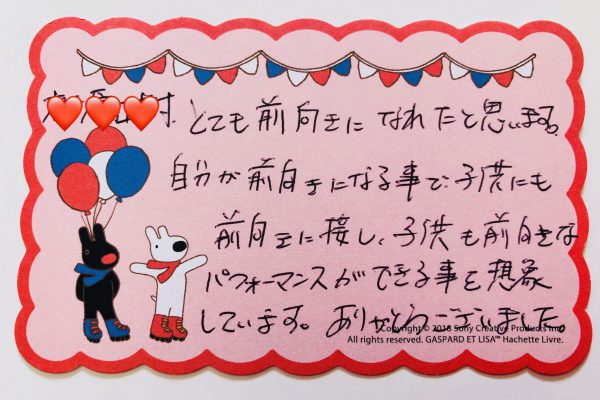 とても前向きになれたと思います。
自分が前向きになる事で、子供にも
前向きに接し、子供も前向きな
パフォーマンスができる事を想像
しています。ありがとうございました。
Copyright © 2018 Sony Creative Products Inc.
All rights reserved. GASPARD ET LISA™ Hachette Livre.